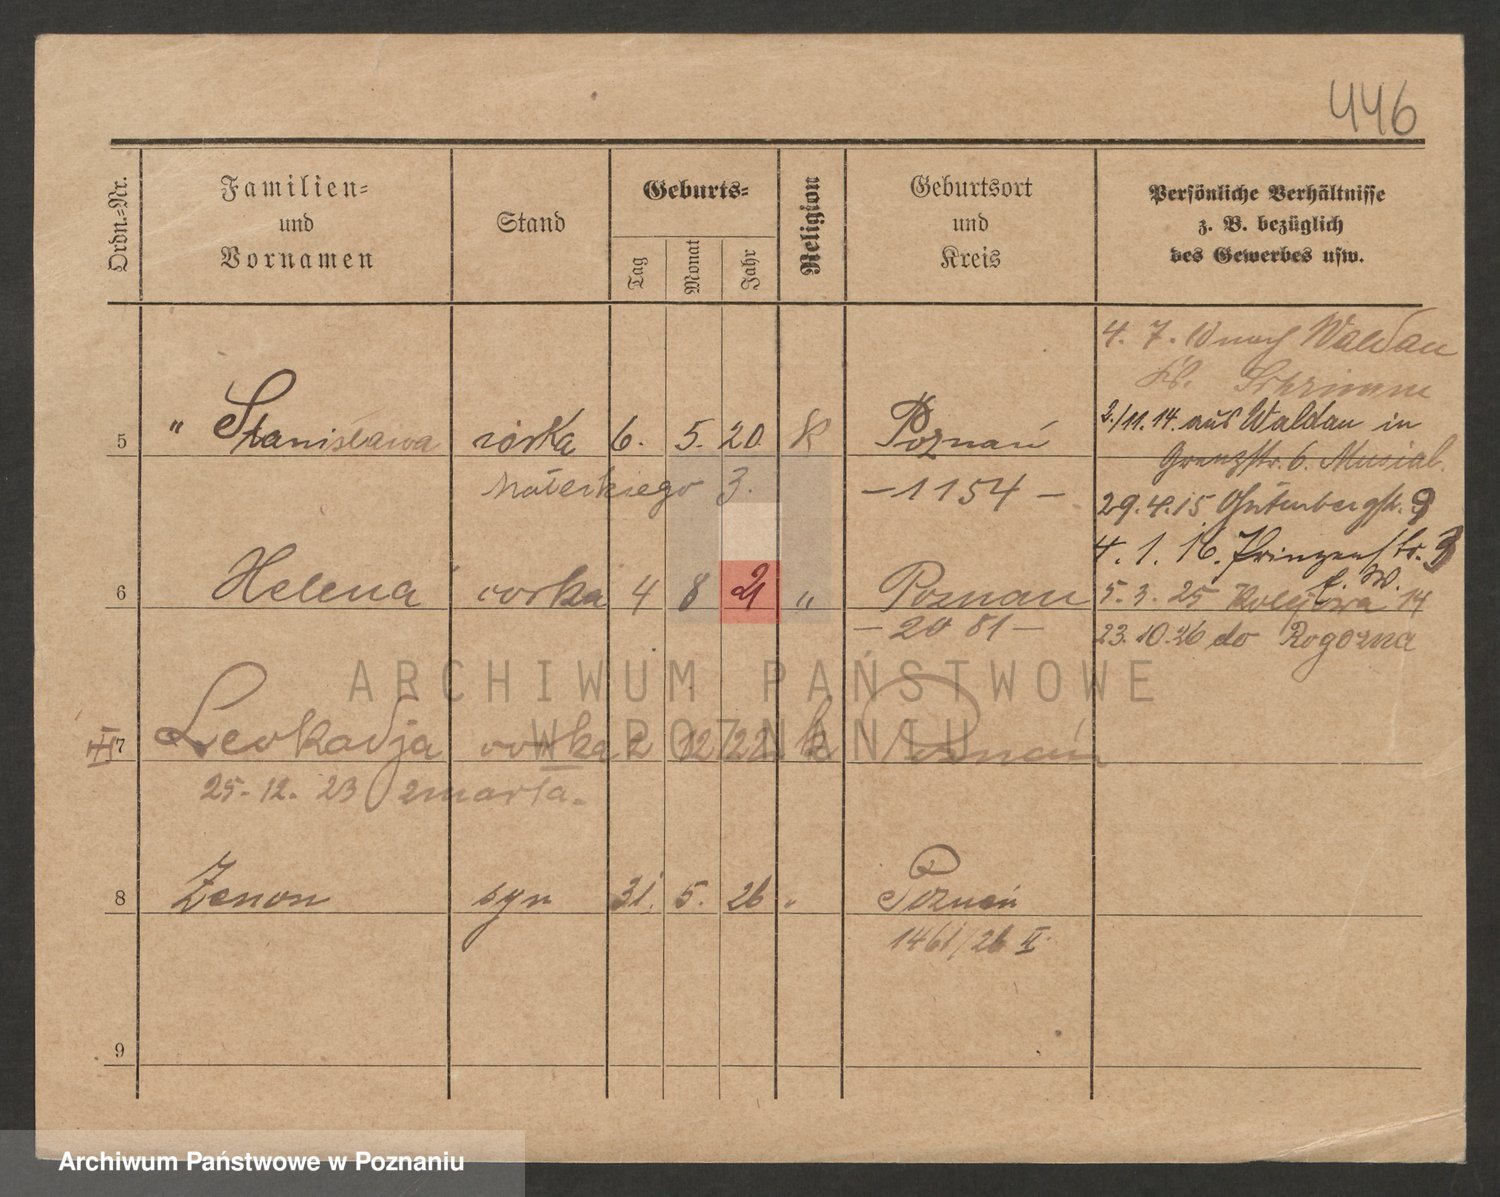 446
Ordn.-Nr.
Familien-
und
Vornamen
Stand
Geburts-
Tag
Monat
Jahr
Religion
Geburtsort
und
Kreis
Persönliche Verhältnisse
z. B. bezüglich
des Gewerbes usw.
4. 7. 10 nach Waldau
Kr. Schrimm
5 " Stanisława córka 6. 5. 20 K Poznań
2./11.14. aus Waldau in
Grenzstr. 6. Musial.
Małeckiego 3.
-1154-
29.4.15 Gutenbergstr. 9
4. 1. 16. Prinzenstr. 3
b. W.
6 Helena córka 4 8 21 " Poznań
5. 3. 25 Kolejowa 14
-2081-
23.10.26 do Rogozna
ARCHIWUM PAŃSTWOWE
W POZNANIU
7 Leokadja córka 2 12 22 k Poznań
25-12. 23 zmarła.
8 Zenon syn 31. 5. 26 " Poznań
1461/26 II.
9
Archiwum Państwowe w Poznaniu